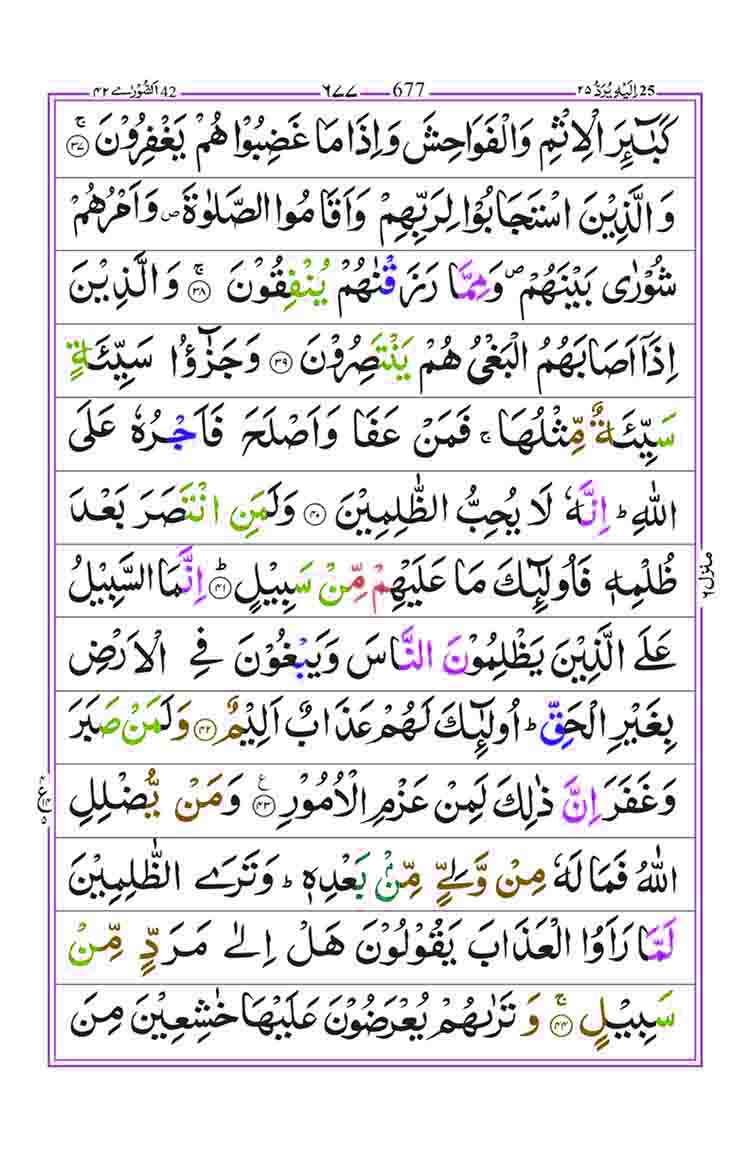 اِلَيْهِ يُرَدُّ ٢٥ 25 677 ٦٧٧ اَلشُّوْرٰى ٤٢ 42
كَبٰٓئِرَ الْاِثْمِ وَالْفَوَاحِشَ وَاِذَا مَا غَضِبُوْا هُمْ يَغْفِرُوْنَ ۚ‏﴿۳۷﴾
وَالَّذِيْنَ اسْتَجَابُوْا لِرَبِّهِمْ وَاَقَامُوا الصَّلٰوةَ ص وَاَمْرُهُمْ
شُوْرٰى بَيْنَهُمْ ص وَمِمَّا رَزَقْنٰهُمْ يُنْفِقُوْنَ ۚ‏﴿۳۸﴾ وَالَّذِيْنَ
اِذَآ اَصَابَهُمُ الْبَغْىُ هُمْ يَنْتَصِرُوْنَ ﴿۳۹﴾ وَجَزٰٓؤُا سَيِّئَةٍ
سَيِّئَةٌ مِّثْلُهَا ۚ فَمَنْ عَفَا وَاَصْلَحَ فَاَجْرُهٗ عَلَى
اللّٰهِ ؕ اِنَّهٗ لَا يُحِبُّ الظّٰلِمِيْنَ ﴿۴۰﴾ وَلَمَنِ انْتَصَرَ بَعْدَ
ظُلْمِهٖ فَاُولٰٓئِكَ مَا عَلَيْهِمْ مِّنْ سَبِيْلٍ ؕ‏﴿۴۱﴾ اِنَّمَا السَّبِيْلُ
عَلَى الَّذِيْنَ يَظْلِمُوْنَ النَّاسَ وَيَبْغُوْنَ فِى الْاَرْضِ
بِغَيْرِ الْحَقِّ ؕ اُولٰٓئِكَ لَهُمْ عَذَابٌ اَلِيْمٌ ﴿۴۲﴾ وَلَمَنْ صَبَرَ
وَغَفَرَ اِنَّ ذٰلِكَ لَمِنْ عَزْمِ الْاُمُوْرِ ع ﴿۴۳﴾ وَمَنْ يُّضْلِلِ
اللّٰهُ فَمَا لَهٗ مِنْ وَّلِىٍّ مِّنْۢ بَعْدِهٖ ؕ وَتَرَى الظّٰلِمِيْنَ
لَمَّا رَاَوُا الْعَذَابَ يَقُوْلُوْنَ هَلْ اِلٰى مَرَدٍّ مِّنْ
سَبِيْلٍ ۚ‏﴿۴۴﴾ وَتَرٰىهُمْ يُعْرَضُوْنَ عَلَيْهَا خٰشِعِيْنَ مِنَ
منزل ٦
٤ ع ١٤ ٥